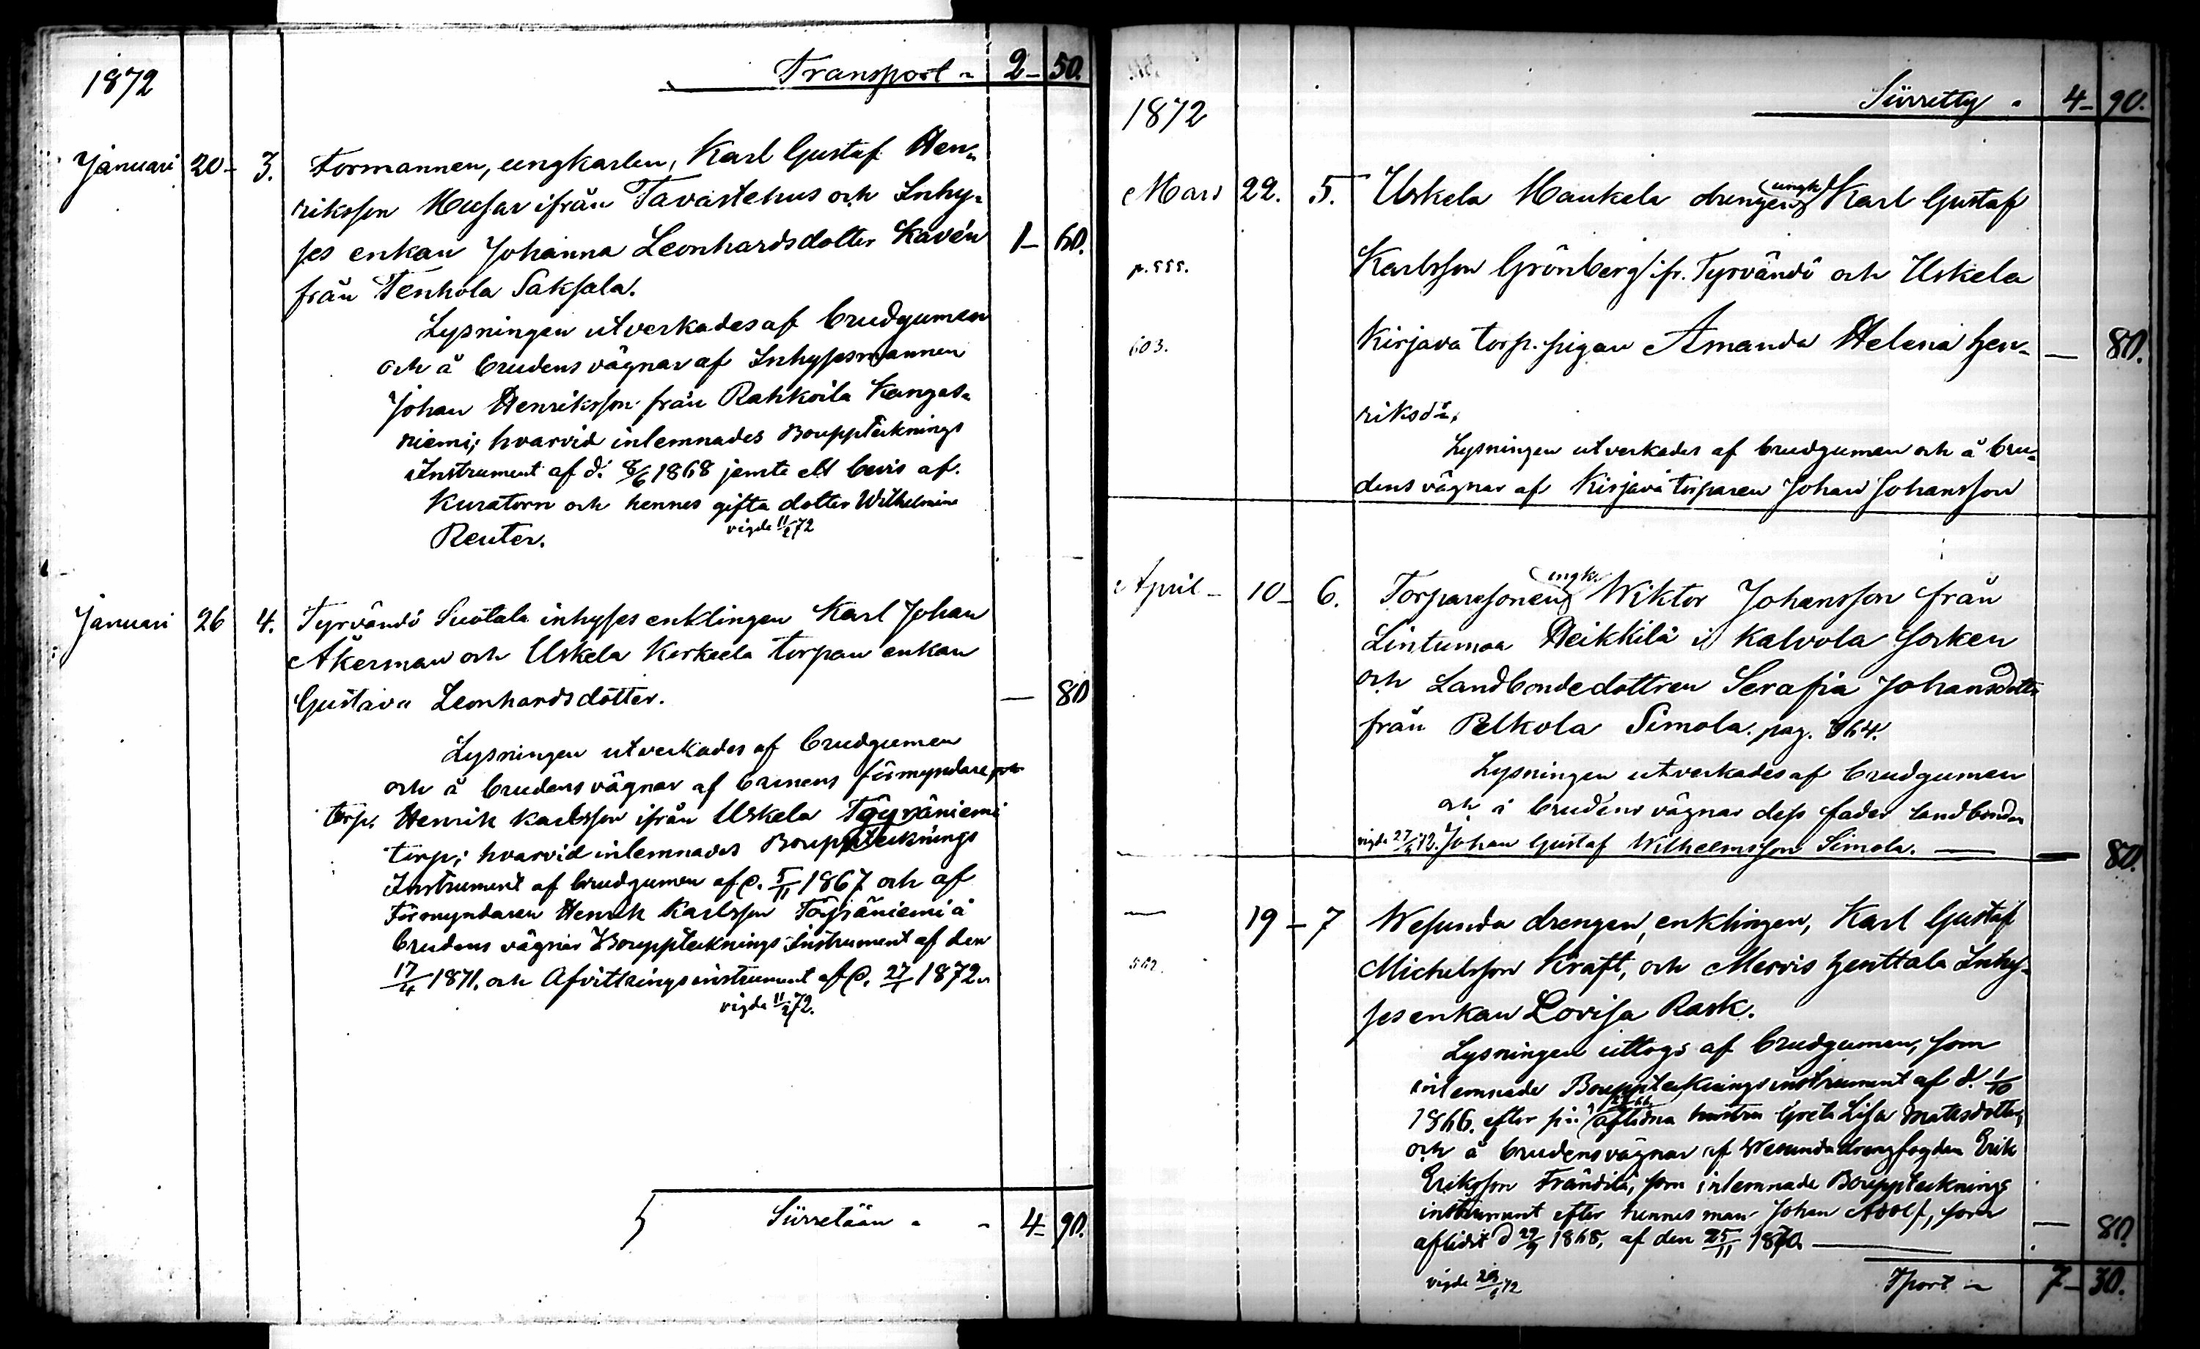 1872
Transport - 2 - 50.
Januari 20 - 3. Formannen, ungkarlen, Karl Gustaf Hen-
riksson Musar ifrån Tavastehus och Inhy-
ses enkan Johanna Leonhardsdotter Kavén 1 - 60.
från Tenhola Saksala.
Lysningen utverkades af brudgumen
och å brudens vägnar af Inhysesmannen
Johan Henriksson från Rahkoila Kangas-
niemi; hvarvid inlemnades Bouppteknings
Instrument af d. 8/6 1868 jemte ett bevis af
Kuratorn och hennes gifta dotter Wilhelmina
Reuter. vigde 11/2 72
Januari 26 4. Tyrvändö Suotala inhyses enklingen Karl Johan
Åkerman och Uskela Kerkela torpan enkan
Gustava Leonhardsdotter. — 80
Lysningen utverkades af brudgumen
och å brudens vägnar af barnens förmyndare
torp. Henrik Karlsson ifrån Uskela Töyräniemi
torp; hvarvid inlemnades Bouppteknings
Instrument af brudgumen af d. 5/11 1867 och af
Förmyndaren Henrik Karlsson Töyräniemi å
brudens vägnar Bouppteknings Instrument af den
17/4 1871. och Afvittringsinstrument af d. 27/1 1872.
vigde 11/2 72.
Siirretään - - 4 - 90.
1872
Siirretty - 4 - 90.
Mars 22. 5. Uskela Maukela drengen ungk. Karl Gustaf
p. 555. Karlsson Grönberg ifr. Tyrvändö och Uskela
603. Kirjava torp. pigan Amanda Helena Hen- — 80.
riksdr.
Lysningen utverkades af brudgumen och å bru-
dens vägnar af Kirjava torparen Johan Johansson
April - 10 - 6. Torparesonen ungk. Wiktor Johansson från
Lintumaa Heikkilä i Kalvola socken
och Landbondedottren Serafia Johansdotter
från Pelkola Simola. pag. 364.
Lysningen utverkades af brudgumen
och å brudens vägnar dess fader landbonden
vigde 27/4 72. Johan Gustaf Wilhelmsson Simola. — — 80.
— 19 - 7 Wesunda drengen, enklingen, Karl Gustaf
Michelsson Kraft, och Mervis Henttala Inhy-
ses enkan Lovisa Rask.
Lysningen uttogs af brudgumen, som
inlemnade Bouppteckningsinstrument af d. 1/10
1866. efter sin aflidna hustru Greta Lisa Mattsdotter,
och å brudens vägnar af Wesunda drengfogden Erik
Eriksson Frändilä, som inlemnade Bouppteknings
instrument efter hennes man Johan Adolf, som
aflidit d 29/9 1868, af den 25/11 1870. — — 80.
vigde 28/4 72 Tport - 7 - 30.